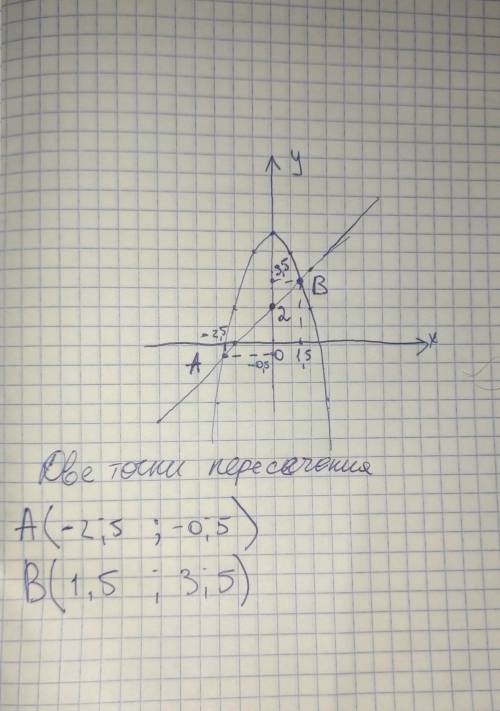 y
3,5
B
2
-2,5
x
A
-0,5
0
1,5
Две точки пересечения
A(-2,5 ; -0,5)
B(1,5 ; 3,5)